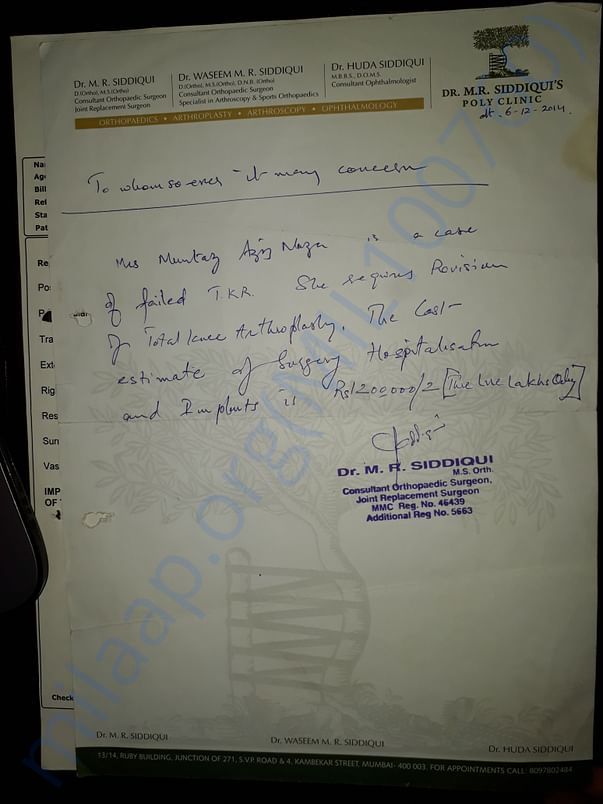 Dr. M. R. SIDDIQUI
D.(Ortho), M.S.(Ortho)
Consultant Orthopaedic Surgeon
Joint Replacement Surgeon
Dr. WASEEM M. R. SIDDIQUI
D.(Ortho), M.S.(Ortho), D.N.B. (Ortho)
Consultant Orthopaedic Surgeon
Specialist in Arthroscopy & Sports Orthopaedics
Dr. HUDA SIDDIQUI
M.B.B.S., D.O.M.S.
Consultant Ophthalmologist
ORTHOPAEDICS • ARTHROPLASTY • ARTHROSCOPY • OPHTHALMOLOGY
DR. M.R. SIDDIQUI'S
POLY CLINIC
dt. 6-12-2014
To whom so ever it may concern
Mrs Mumtaz Aziz is a case
of failed T.K.R. She requires Revision
of Total knee Arthroplasty. The Cost
estimate of Surgery Hospitalisation
and Implants is Only]
Dr. M. R. SIDDIQUI
M.S. Orth.
Consultant Orthopaedic Surgeon,
Joint Replacement Surgeon
MMC Reg. No. 46439
Additional Reg No. 5663
Na
Ag
Bill
Rel
Sta
Pat
Re
Po
P
Tra
Ext
Rig
Res
Sun
Vas
IMP
OF
Check
milaap.org
Dr. M. R. SIDDIQUI
Dr. WASEEM M. R. SIDDIQUI
Dr. HUDA SIDDIQUI
13/14, RUBY BUILDING, JUNCTION OF 271, S.V.P. ROAD & 4, KAMBEKAR STREET, MUMBAI- 400 003. FOR APPOINTMENTS CALL: 8097802484